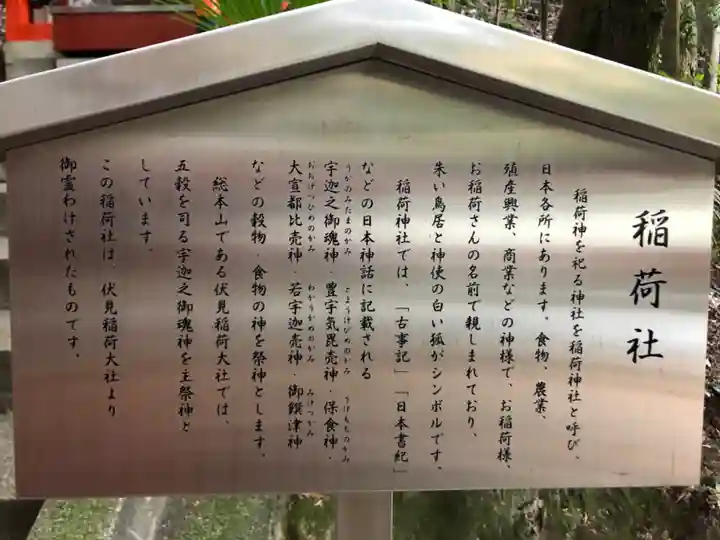 稲荷社
稲荷神を祀る神社を稲荷神社と呼び、
日本各所にあります。食物、農業、
殖産興業、商業などの神様で、お稲荷様、
お稲荷さんの名前で親しまれており、
朱い鳥居と神使の白い狐がシンボルです。
稲荷神社では、「古事記」「日本書紀」
などの日本神話に記載される
うかのみたまのかみ とようけびめのかみ うけもちのかみ
宇迦之御魂神・豊宇気毘売神・保食神・
おおげつひめのかみ わかうかめのかみ みけつかみ
大宣都比売神・若宇迦売神・御饌津神
などの穀物・食物の神を祭神とします。
総本山である伏見稲荷大社では、
五穀を司る宇迦之御魂神を主祭神と
しています。
この稲荷社は、伏見稲荷大社より
御霊わけされたものです。